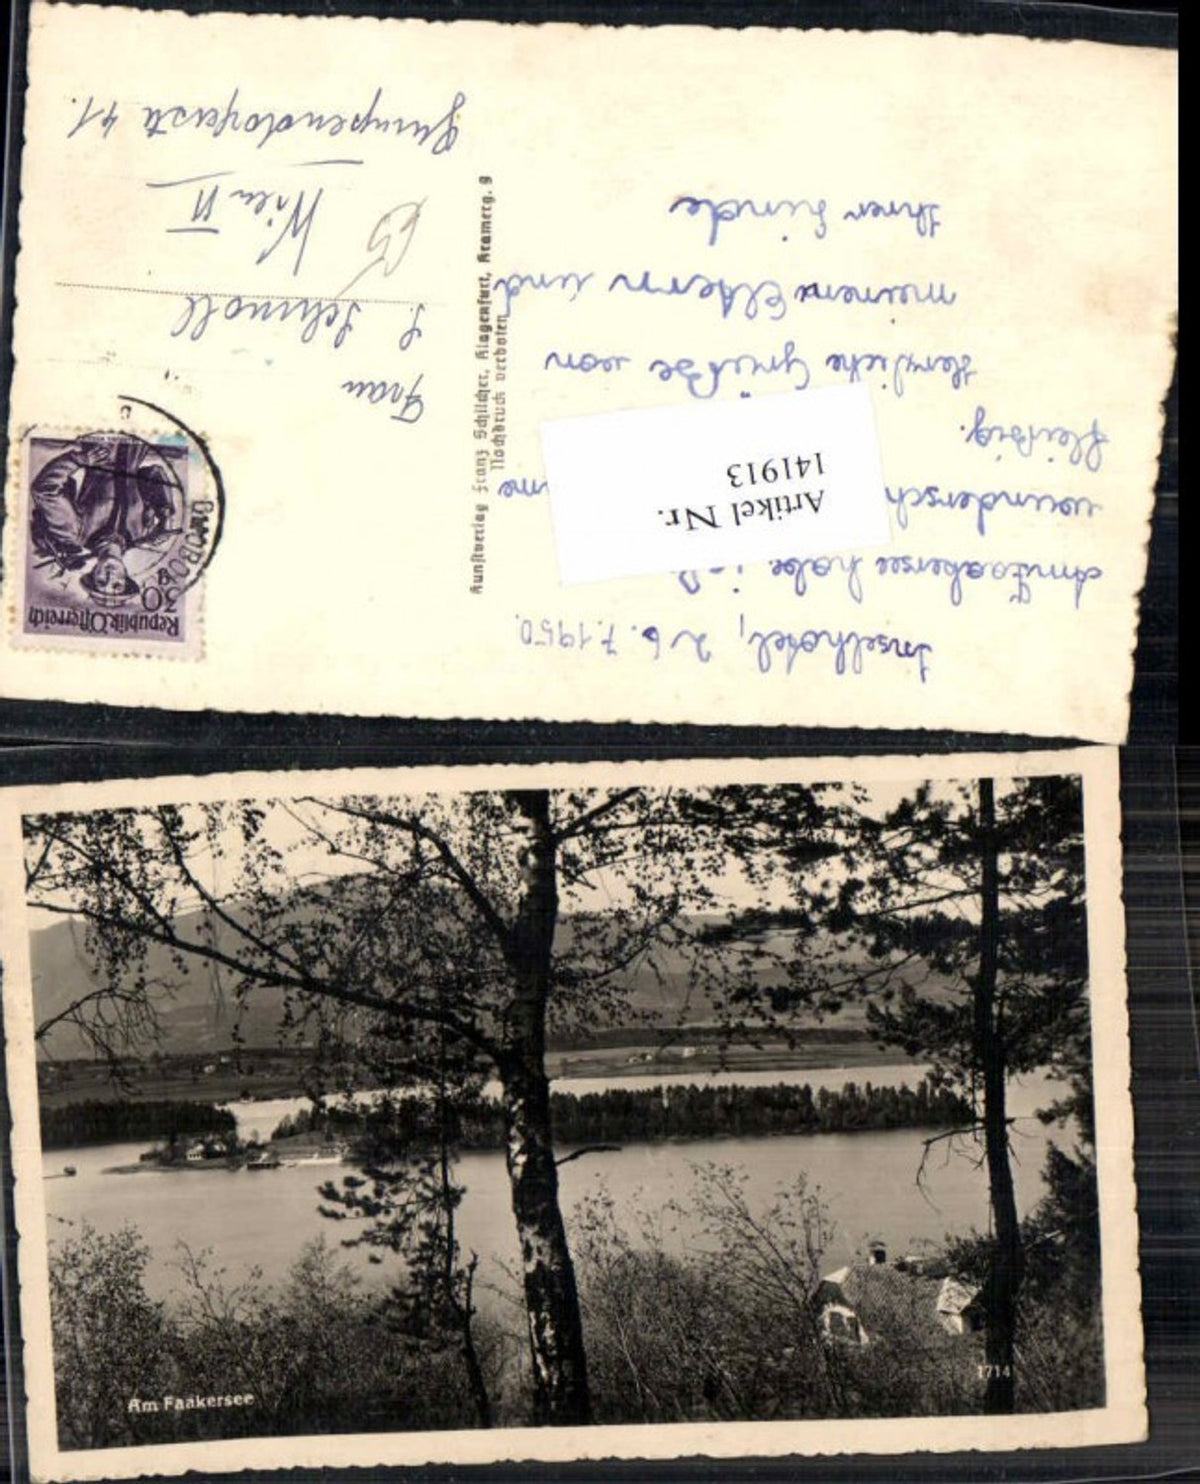 Inselhotel, 26.7.1950.
Am Faakersee habe ich
wundersch
fleißig.
Herzliche Grüße von
meinen Eltern und
Ihrer Linde
Artikel Nr.
141913
Kunstverlag Franz Schilcher, Klagenfurt, Kramerg. 9
Nachdruck verboten
Republik Österreich
30 g
Frau
L. Schmoll
Wien VI
Gumpendorferstr 41.
Am Faakersee
1714